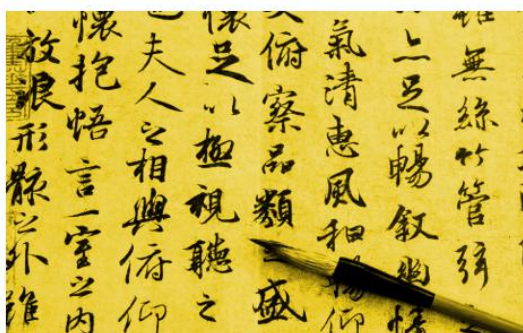 雖無絲竹管弦
亦足以暢叙幽情
氣清惠風和暢仰
大俯察品類之盛
懷足以極視聽之
也夫人之相與俯仰
懷抱悟言一室之內
放浪形骸之外雖